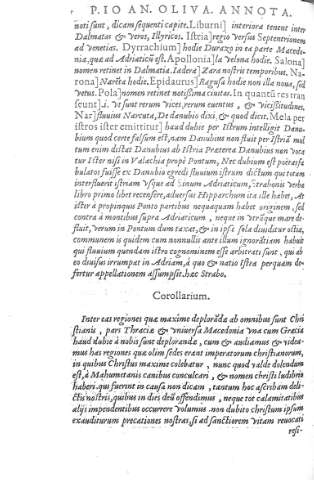 P. IO AN. OLIVA. ANNOTA.
noti sunt, dicam sequenti capite. Liburni] interiora tenent inter
Dalmatas & veros, Illyricos. Istria] regio versus Septentrionem
ad Venetias. Dyrrachium] hodie Durazo in ea parte Macedo-
nia, quæ ad Adriaticũ est. Apollonia] la velona hodie. Salona]
nomen retinet in Dalmatia. Iadera] Zara nostris temporibus. Na
rona] Narẽta hodie. Epidaurus] Ragusa hodie non illa noua, sed
vetus. Pola] nomen retinet notissima ciuitas. In quantũ res tran
seunt] .i. vt sunt rerum vices, rerum euentus, & vicissitudines.
Nar] fluuius Narcuta, De danubio dixi, & quod dicit. Mela per
istros ister emittitur] haud dubie per Istrum intelligit Danu-
bium quod certe falsum est, nam Danubius non fluit per istriã mul
tum enim distat Danubius ab Istria Præterea Danubius non voca
tur Ister nisi in Valachia propè Pontum, Nec dubium est poëtas fa
bulatos fuisse ex Danubio egredi fluuium istrum dictum qui totam
interfluueret istriam vsque ad Sinum Adriaticum, Strabonis verba
libro primo libet recensere, aduersus Hipparchum ita ille habet, At
ister a propinquis Ponto partibus nequaquam habet originem, sed
contra à montibus supra Adriaticum, neque in vtrũque mare de-
fluit, verum in Pontum dum taxat, & in ipse sola diuiditur ostia,
communem is quidem cum nonnullis ante illum ignorãtiam habuit
qui fluuium quendam istro cognominem esse arbitrati sunt, qui ab
eo diuisus irrumpat in Adriam, à quo & natio Istra perquam de-
fertur appellationem assumpsit. hæc Strabo.
Corollarium.
Inter eas regiones quæ maxime deplorãda ab omnibus sunt Chri
stianis, pars Thraciæ & vniuersa Macedonia vna cum Græcia
haud dubiè à nobis sunt deploranda, cum & audiamus & videa-
mus has regiones quæ olim sedes erant imperatorum christianorum,
in quibus Christus maxime colebatur, nunc quod valde dolendum
est, à Mahometanis canibus conculcari, & nomen christi ludibrio
haberi. qui fuerint in causa non dicam, tantum hoc ascribam deli-
ctis nostris, quibus in dies deũ offendimus, neque tot calamitatibus
alij impendentibus occurrere volumus. non dubito christum ipsum
exauditurum precationes nostras, si ad sanctierem vitam reuocati
resi-